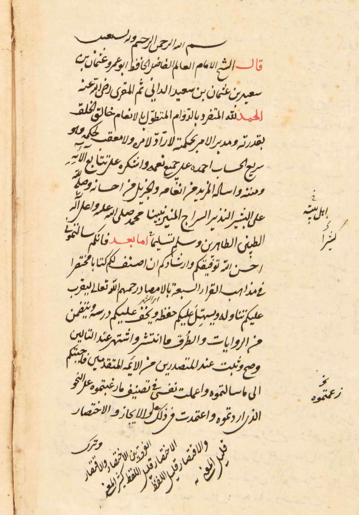 بسم الله الرحمن الرحيم وبه نستعين
قال الشيخ الامام العالم الفاضل الحافظ ابو عمرو عثمان بن
سعيد بن عثمان بن سعيد الداني ثم المقرئ رضي الله عنه
الحمد لله المنفرد بالدوام المتطول بالانعام خالق الخلق
بقدرته ومدبر الامر بحكمته لا راد لامره ولا معقب لحكمه وهو
سريع الحساب احمده على جميع نعمه واشكره على تتابع آلائه
ومننه واساله المزيد من انعامه والجزيل من احسانه وصلى الله
على البشير النذير السراج المنير نبينا محمد صلى الله عليه وعلى آله
الطيبين الطاهرين وسلم تسليما اما بعد فانكم سالتموني
احسن الله توفيقكم وارشادكم ان اصنف لكم كتابا مختصرا
في مذاهب القراء السبعة بالامصار رحمهم الله تعالى يقرب
عليكم تناوله ويسهل عليكم حفظه ويخف عليكم درسه ويتضمن
من الروايات والطرق ما انتشر واشتهر عند التالين
وصح وثبت عند المتصدرين من الائمة المتقدمين فاجبتكم
الى ما سالتموه واعملت نفسي في تصنيف ما رغبتموه على النحو
الذي اردتموه واعتمدت في ذلك على الايجاز والاختصار
الفرق بين الاختصار والاقتصار
الاختصار قليل اللفظ كثير المعنى
والاقتصار قليل اللفظ
قليل المعنى